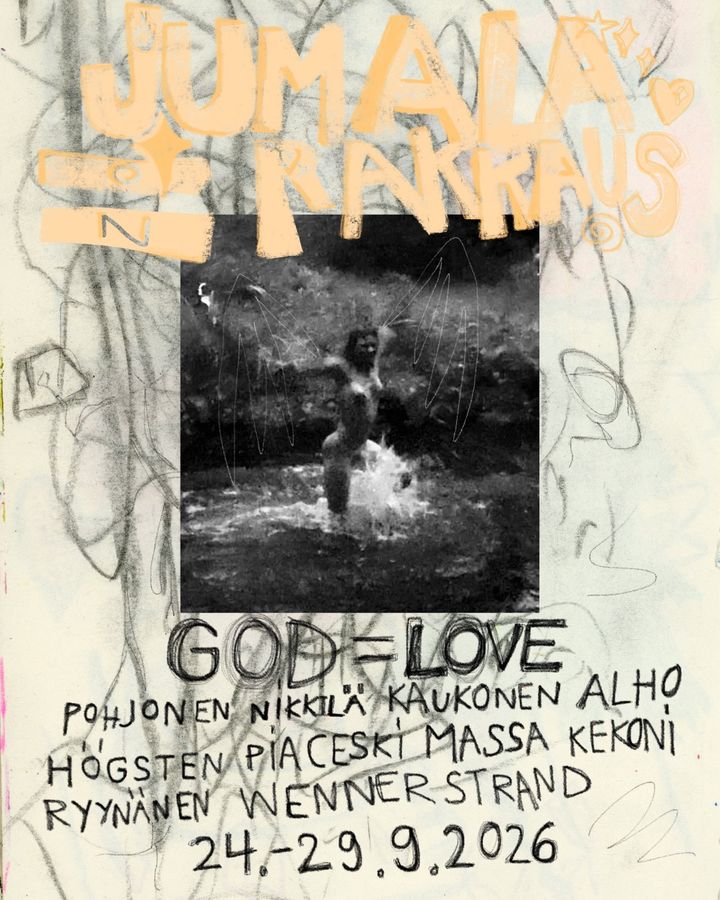 JUMALA
ON RAKKAUS
GOD = LOVE
POHJONEN NIKKILÄ KAUKONEN ALHO
HÖGSTEN PIACESKI MASSA KEKONI
RYYNÄNEN WENNERSTRAND
24.-29.9.2026